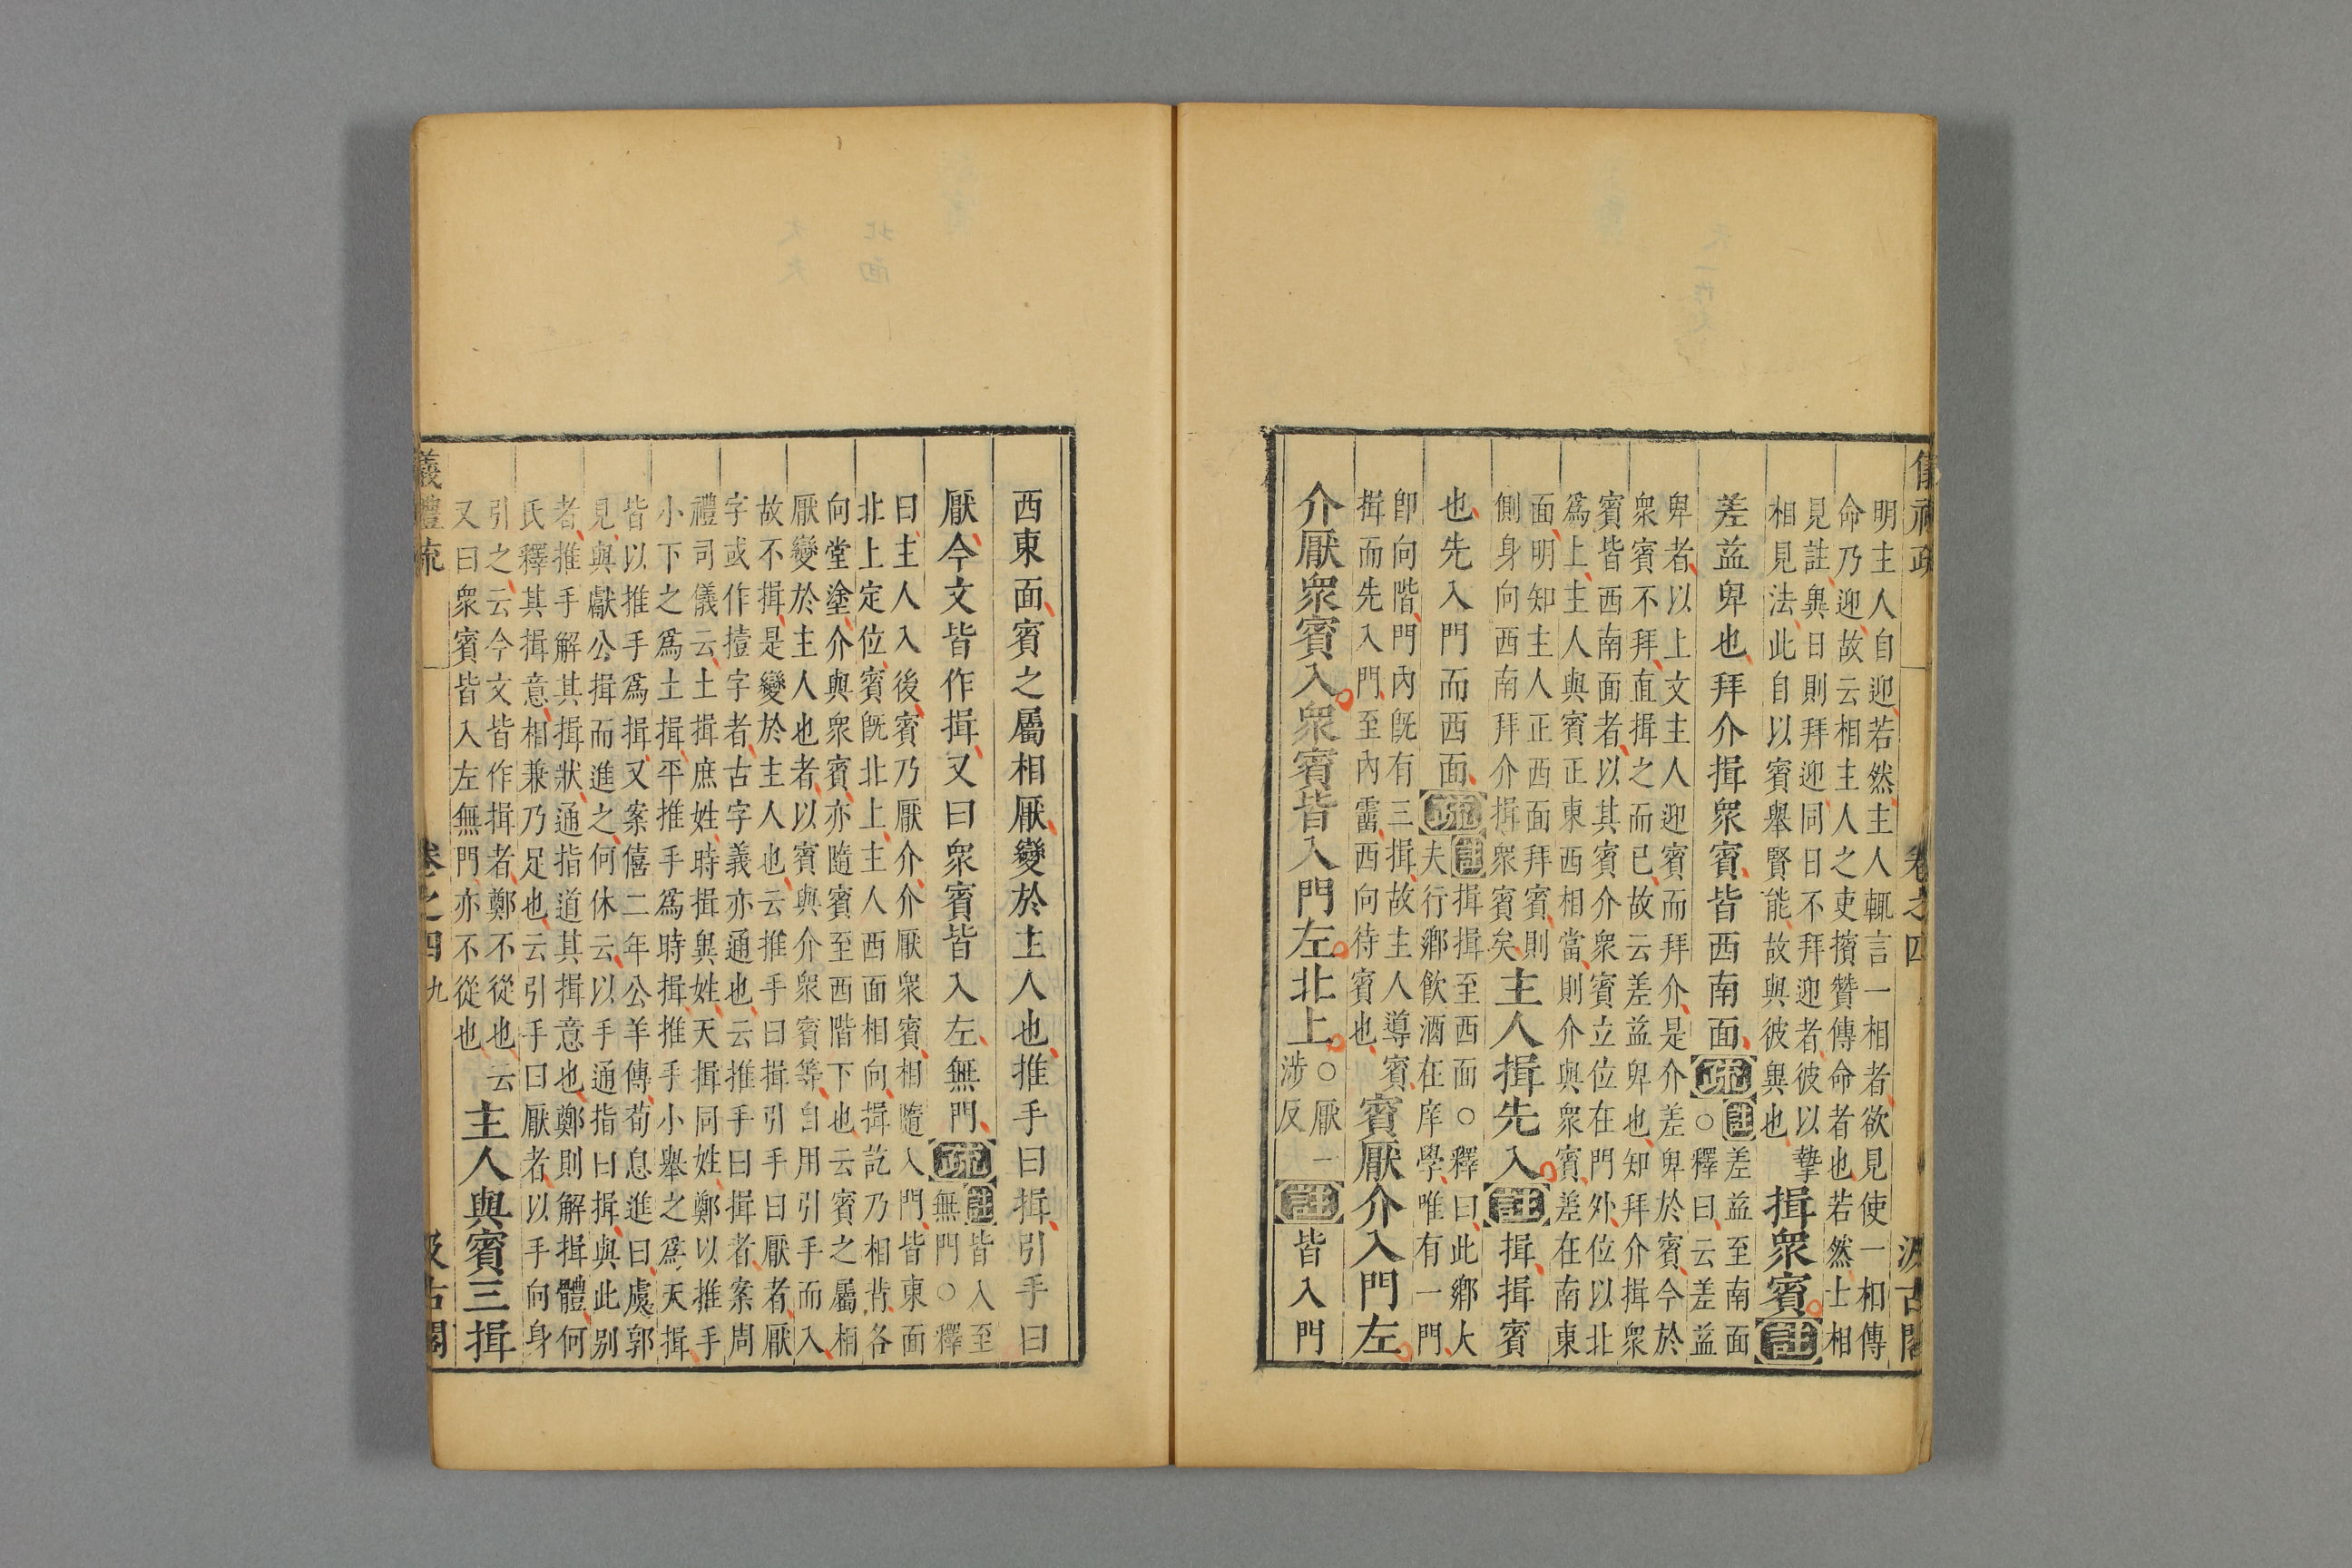 儀禮疏 卷之四 汲古閣
明主人自迎若然主人輒言一相者欲見使一相傳
命乃迎故云相主人之吏擯贊傳命者也若然士相
見註異日則拜迎同日不拜迎者彼以摯
相見法此自以賓舉賢能故與彼異也
揖衆賓註
差益卑也拜介揖衆賓皆西南面疏
註差益至南面
○釋曰云差益
卑者以上文主人迎賓而拜介是介差卑於賓今於
衆賓不拜直揖之而已故云差益卑也知拜介揖衆
賓皆西南面者以其賓介衆賓立位在門外位以北
爲上主人與賓正東西相當則介與衆賓差在南東
面明知主人正西面拜賓則
側身向西南拜介揖衆賓矣
主人揖先入註揖揖賓
也先入門而西面疏
註揖揖至西面○釋曰此鄉大
夫行鄉飲酒在庠學唯有一門
卽向階門內旣有三揖故主人導賓
揖而先入門至內霤西向待賓也
賓厭介入門左
介厭衆賓入衆賓皆入門左北上
○厭一
涉反
註皆入門
西東面賓之屬相厭變於主人也推手曰揖引手曰
厭今文皆作揖又曰衆賓皆入左無門疏
註皆入至
無門○釋
曰主人入後賓乃厭介介厭衆賓相隨入門皆東面
北上定位賓旣北上主人西面相向揖訖乃相背各
向堂塗介與衆賓亦隨賓至西階下也云賓之屬相
厭變於主人也者以賓與介衆賓等自用引手而入
故不揖是變於主人也云推手曰揖引手曰厭者厭
字或作撎字者古字義亦通也云推手曰揖者案周
禮司儀云土揖庶姓時揖異姓天揖同姓鄭以推手
小下之爲土揖平推手爲時揖推手小舉之爲天揖
皆以推手爲揖又案僖二年公羊傳荀息進曰虞郭
見與獻公揖而進之何休云以手通指曰揖與此別
者推手解其揖狀通指道其揖意也鄭則解揖體何
氏釋其揖意相兼乃足也云引手曰厭者以手向身
引之云今文皆作揖者鄭不從也云
又曰衆賓皆入左無門亦不從也
主人與賓三揖
儀禮疏 卷之四 九 汲古閣